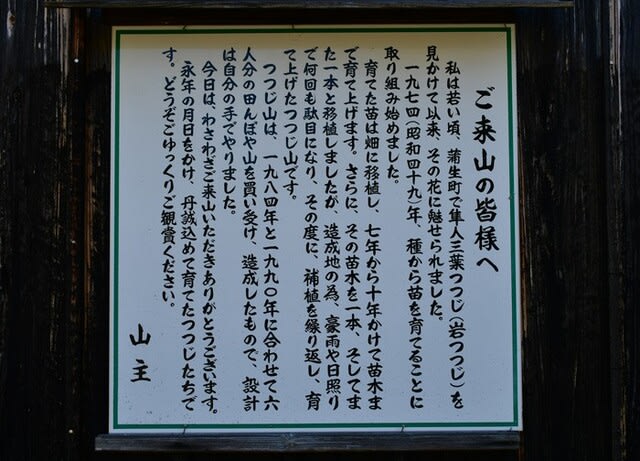 ご来山の皆様へ
私は若い頃、蒲生町で隼人三葉つつじ(岩つつじ)を
見かけて以来、その花に魅せられました。
一九七四(昭和四十九)年、種から苗を育てることに
取り組み始めました。
育てた苗は畑に移植し、七年から十年かけて苗木ま
で育て上げます。さらに、その苗木を一本、そしてま
た一本と移植しましたが、造成地の為、豪雨や日照り
で何回も駄目になり、その度に、補植を繰り返し、育
て上げたつつじ山です。
つつじ山は、一九八四年と一九九〇年に合わせて六
人分の田んぼや山を買い受け、造成したもので、設計
は自分の手でやりました。
今日は、わざわざご来山いただきありがとうございます。
永年の月日をかけ、丹誠込めて育てたつつじたちで
す。どうぞごゆっくりご観賞ください。
山主